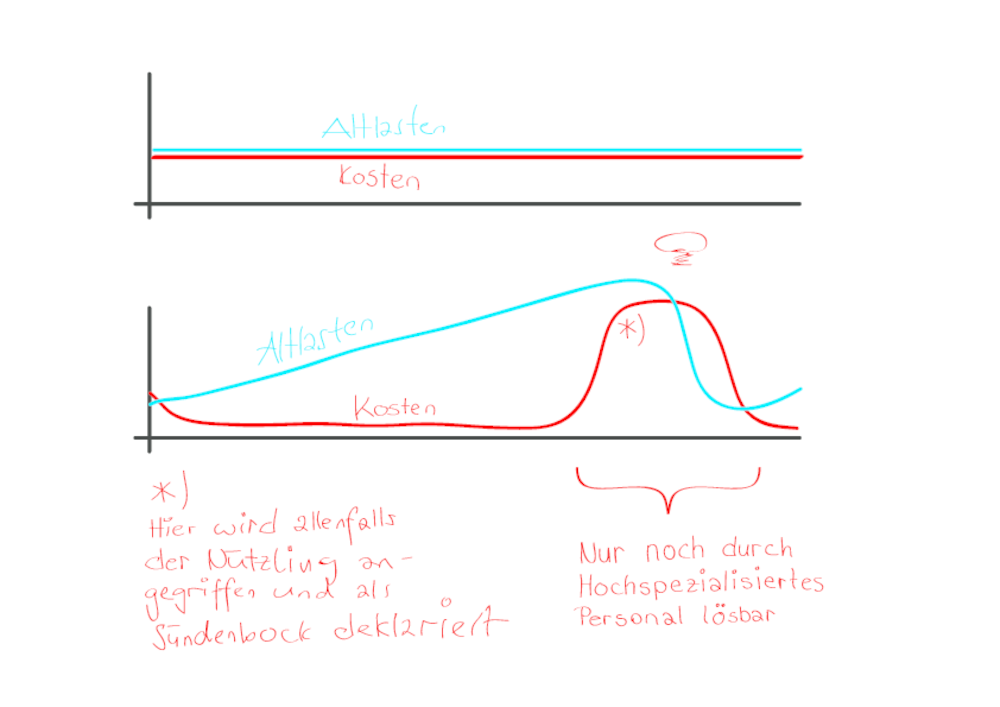 Altlasten
Kosten
Altlasten
*)
Kosten
*)
Hier wird allenfalls
der Nützling an-
gegriffen und als
Sündenbock deklariert
Nur noch durch
Hochspezialisiertes
Personal lösbar